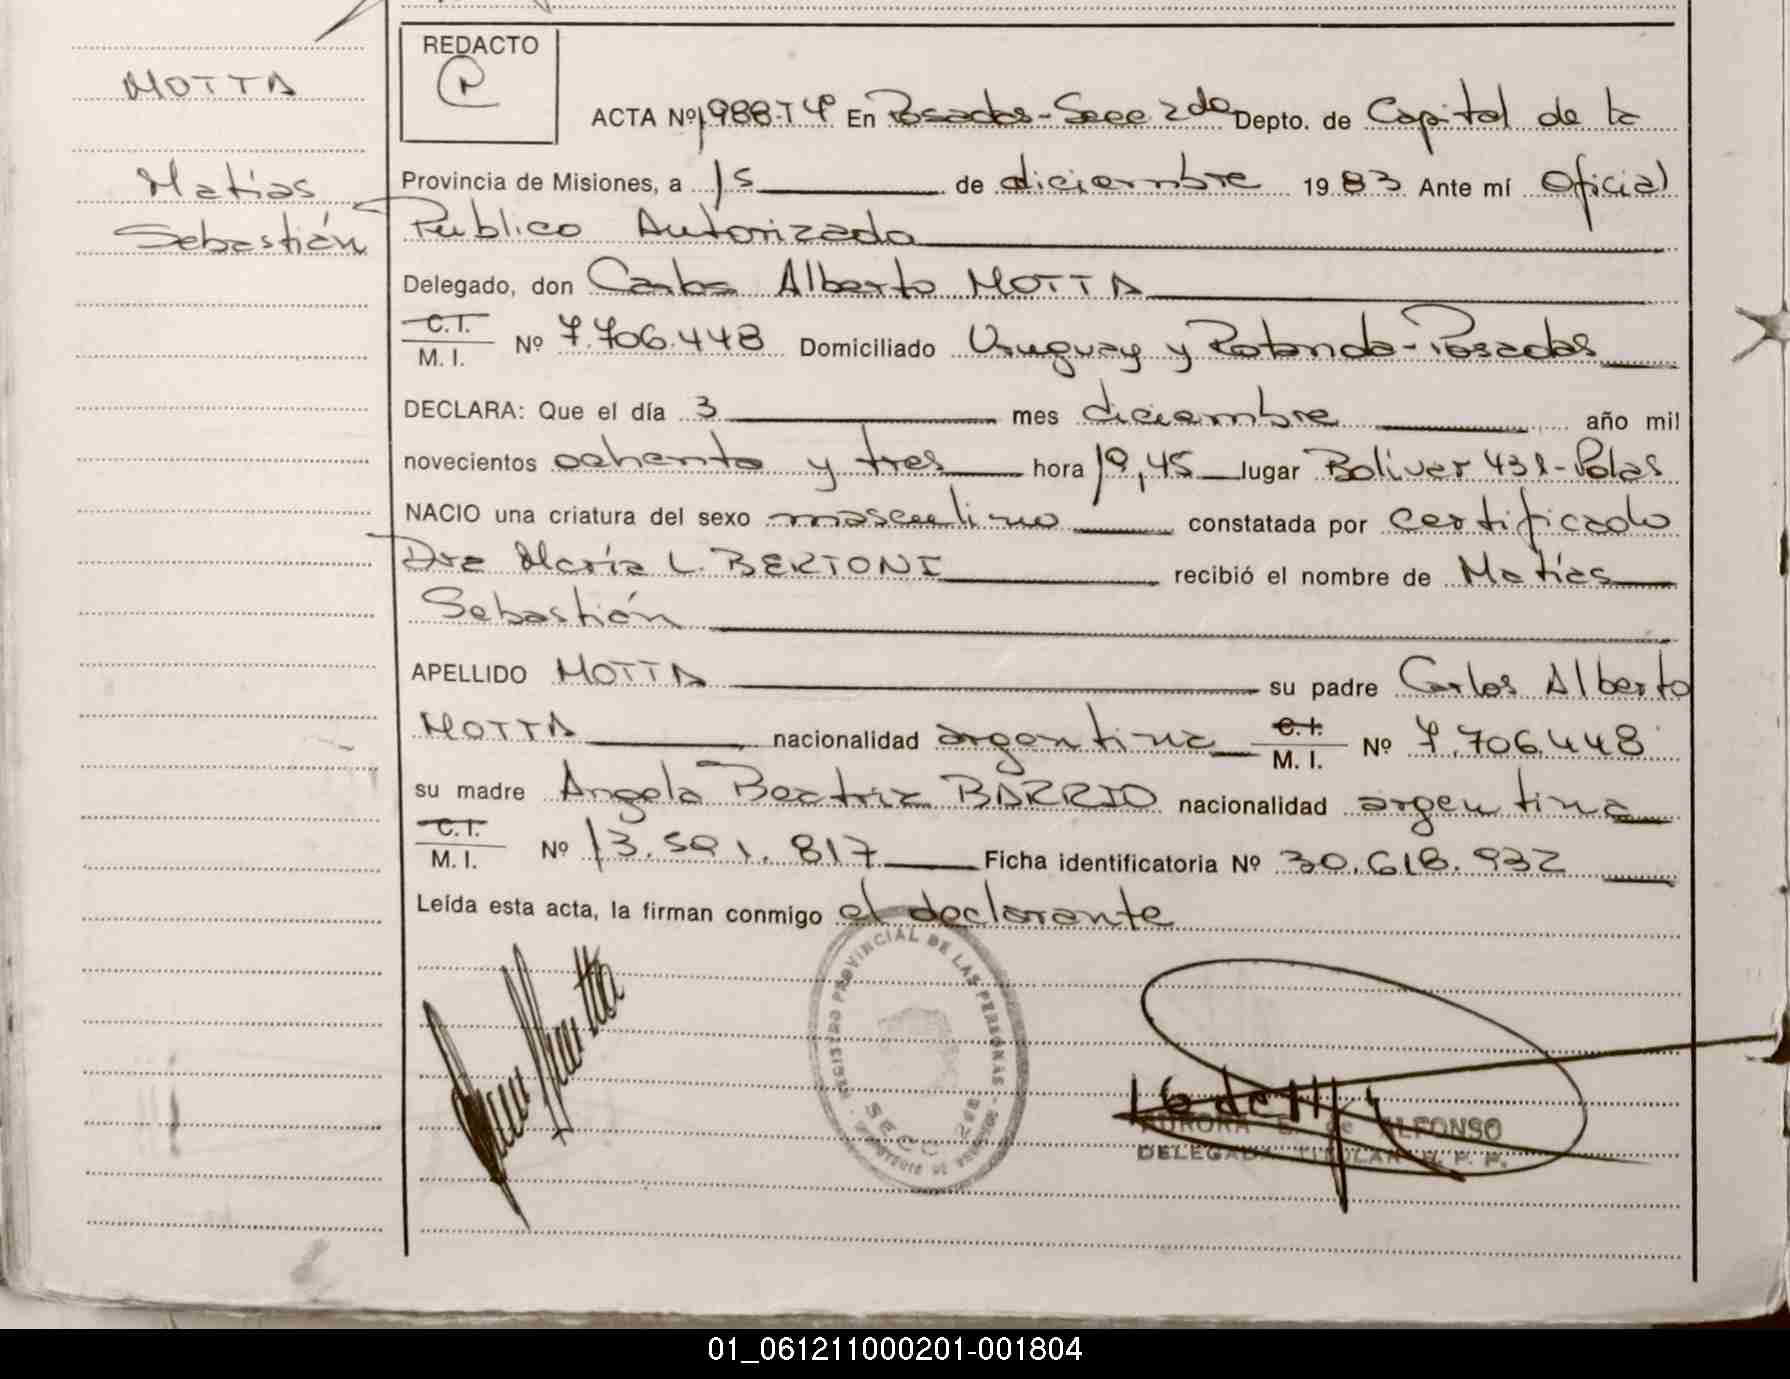 MOTTA
Matías
Sebastián
REDACTO
ACTA Nº 1988-Tº 4º En Posadas-Secc 2da Depto. de Capital de la
Provincia de Misiones, a 15 de diciembre 1983 Ante mí Oficial
Publico Autorizado
Delegado, don Carlos Alberto MOTTA
C.I.
M. I. Nº 7.706.448 Domiciliado Uruguay y Rotonda-Posadas
DECLARA: Que el día 3 mes diciembre año mil
novecientos ochenta y tres hora 19,45 lugar Bolivar 431-Pdas
NACIO una criatura del sexo masculino constatada por certificado
Dra María L. BERTONI recibió el nombre de Matías
Sebastián
APELLIDO MOTTA su padre Carlos Alberto
MOTTA nacionalidad argentina C.I.
M. I. Nº 7.706.448
su madre Angela Beatriz BARRIO nacionalidad argentina
C.I.
M. I. Nº 13.591.817 Ficha identificatoria Nº 30.618.932
Leída esta acta, la firman conmigo el declarante
REGISTRO PROVINCIAL DE LAS PERSONAS
SECC 2DA
PROVINCIA DE MISIONES
AURORA de ALFONSO
DELEGADA TITULAR R. P. P.
01_061211000201-001804